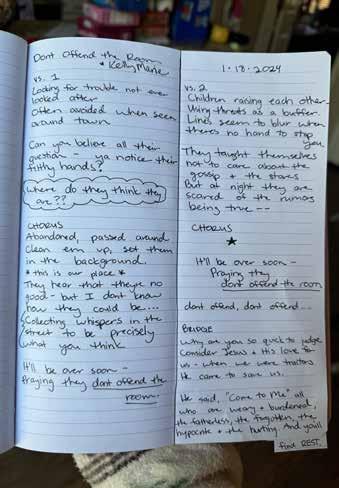 Dont Offend the Room
* Kelly Marie
vs. 1
Looking for trouble not ever
looked after
Often avoided when seen
around town
Can you believe all their
question - ya notice their
filthy hands?
where do they think they
are??
CHORUS
Abandoned, passed around
Clean em up, set them
in the background.
* this is our place *
They hear that theyre no
good - but I dont know
how they could be....
Collecting whispers in the
street to be precisely
what you think
It'll be over soon -
Praying they dont offend the
room.
1·18·2024
vs. 2
Children raising each other
Using threats as a buffer
Lines seem to blur when
theres no hand to stop
you
They taught themselves
not to care about the
gossip + the stares
But at night they are
scared of the rumors
being true --
CHORUS
★
It'll be over soon -
Praying they
dont offend the room
dont offend, dont offend...
BRIDGE
Why are you so quick to judge
Consider Jesus + His love for
us - when we were traitors
He came to save us.
He said, "Come to Me" all
who are weary + burdened,
the fatherless, the forgotten, the
hypocrite + the hurting. And you'll
find REST.